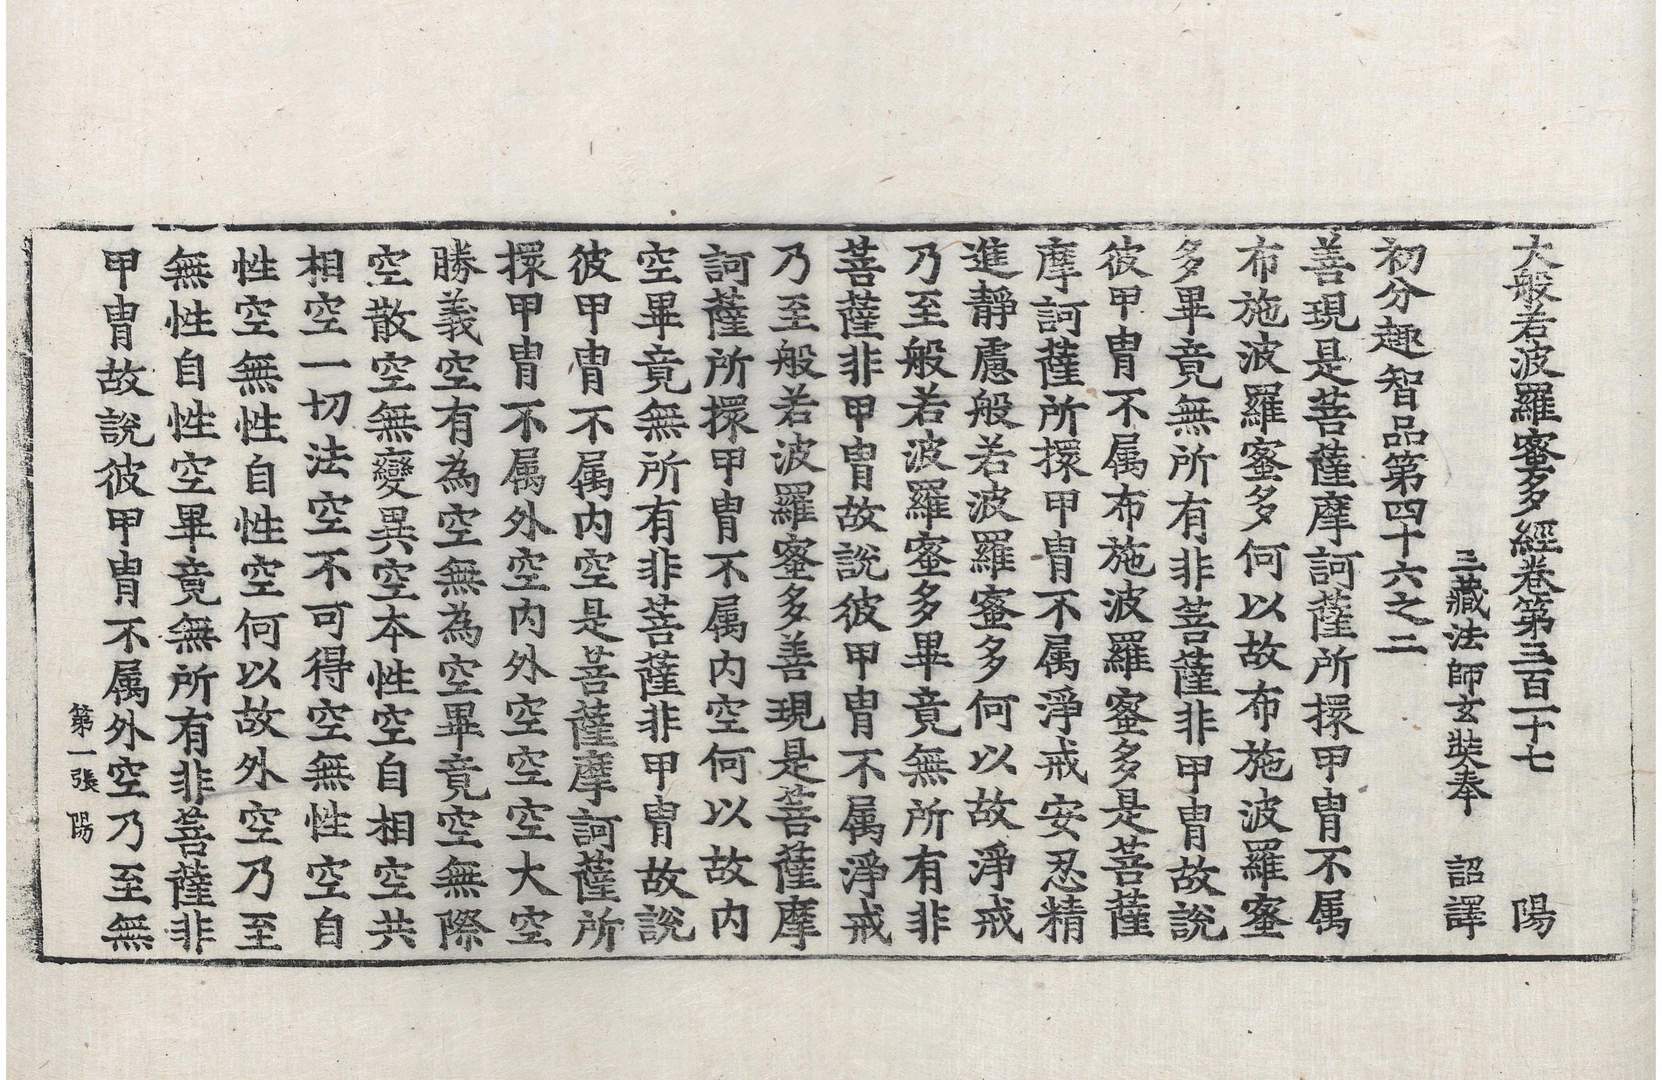 大般若波羅蜜多經卷第三百二十七 陽
三藏法師玄奘奉 詔譯
初分趣智品第四十六之二
善現是菩薩摩訶薩所擐甲冑不属
布施波羅蜜多何以故布施波羅蜜
多畢竟無所有非菩薩非甲冑故說
彼甲冑不属布施波羅蜜多是菩薩
摩訶薩所擐甲冑不属淨戒安忍精
進靜慮般若波羅蜜多何以故淨戒
乃至般若波羅蜜多畢竟無所有非
菩薩非甲冑故說彼甲冑不属淨戒
乃至般若波羅蜜多善現是菩薩摩
訶薩所擐甲冑不属内空何以故内
空畢竟無所有非菩薩非甲冑故說
彼甲冑不属内空是菩薩摩訶薩所
擐甲冑不属外空内外空空空大空
勝義空有為空無為空畢竟空無際
空散空無變異空本性空自相空共
相空一切法空不可得空無性空自
性空無性自性空何以故外空乃至
無性自性空畢竟無所有非菩薩非
甲冑故說彼甲冑不属外空乃至無
第一張 陽